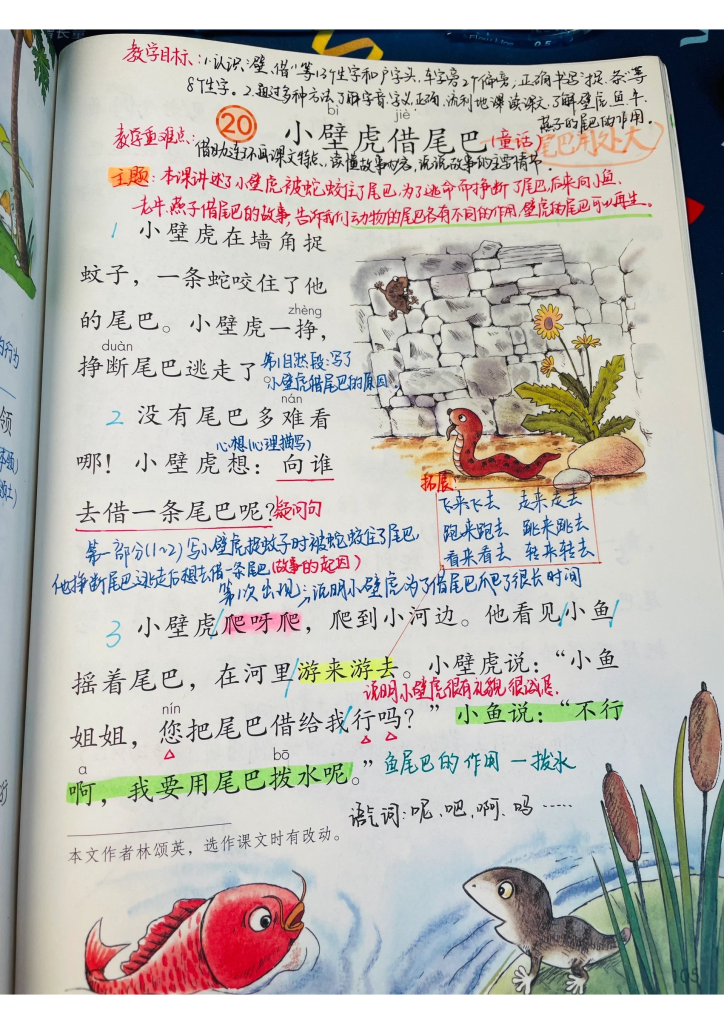 教学目标:1.认识“壁、借”等13个生字和户字头、车字旁2个偏旁,正确书写“捉、条”等
8个生字。2.通过多种方法了解字音、字义,正确、流利地课读课文,了解壁虎、鱼、牛、
燕子的尾巴的作用。
bì jiè
20 小壁虎借尾巴 (童话) 尾巴用处大
教学重难点:借助连环画课文特点,读懂故事内容,说说故事的主要情节。
主题:本课讲述了小壁虎被蛇蛟住了尾巴,为了逃命而挣断了尾巴后来向小鱼、
老牛、燕子借尾巴的故事,告诉我们动物的尾巴各有不同的作用,壁虎的尾巴可以再生。
1 小壁虎在墙角捉
蚊子,一条蛇咬住了他
zhèng
的尾巴。小壁虎一挣,
duàn
挣断尾巴逃走了。
第1自然段:写了
小壁虎借尾巴的原因
nán
2 没有尾巴多难看
心想(心理描写)
哪!小壁虎想:向谁
去借一条尾巴呢?疑问句
拓展:
飞来飞去 走来走去
跑来跑去 跳来跳去
看来看去 转来转去
第一部分(1~2)写小壁虎捉蚊子时被蛇蛟住了尾巴
他挣断尾巴逃走后想去借一条尾巴(故事的起因)
第1次出现:说明小壁虎为了借尾巴爬了很长时间
3 小壁虎爬呀爬,爬到小河边。他看见小鱼
摇着尾巴,在河里游来游去。小壁虎说:“小鱼
说明小壁虎很有礼貌、很诚恳
nín
姐姐,您把尾巴借给我行吗?”小鱼说:“不行
a bō
啊,我要用尾巴拨水呢。”
鱼尾巴的作用一拨水
语气词:呢、吧、啊、吗……
本文作者林颂英,选作课文时有改动。
105